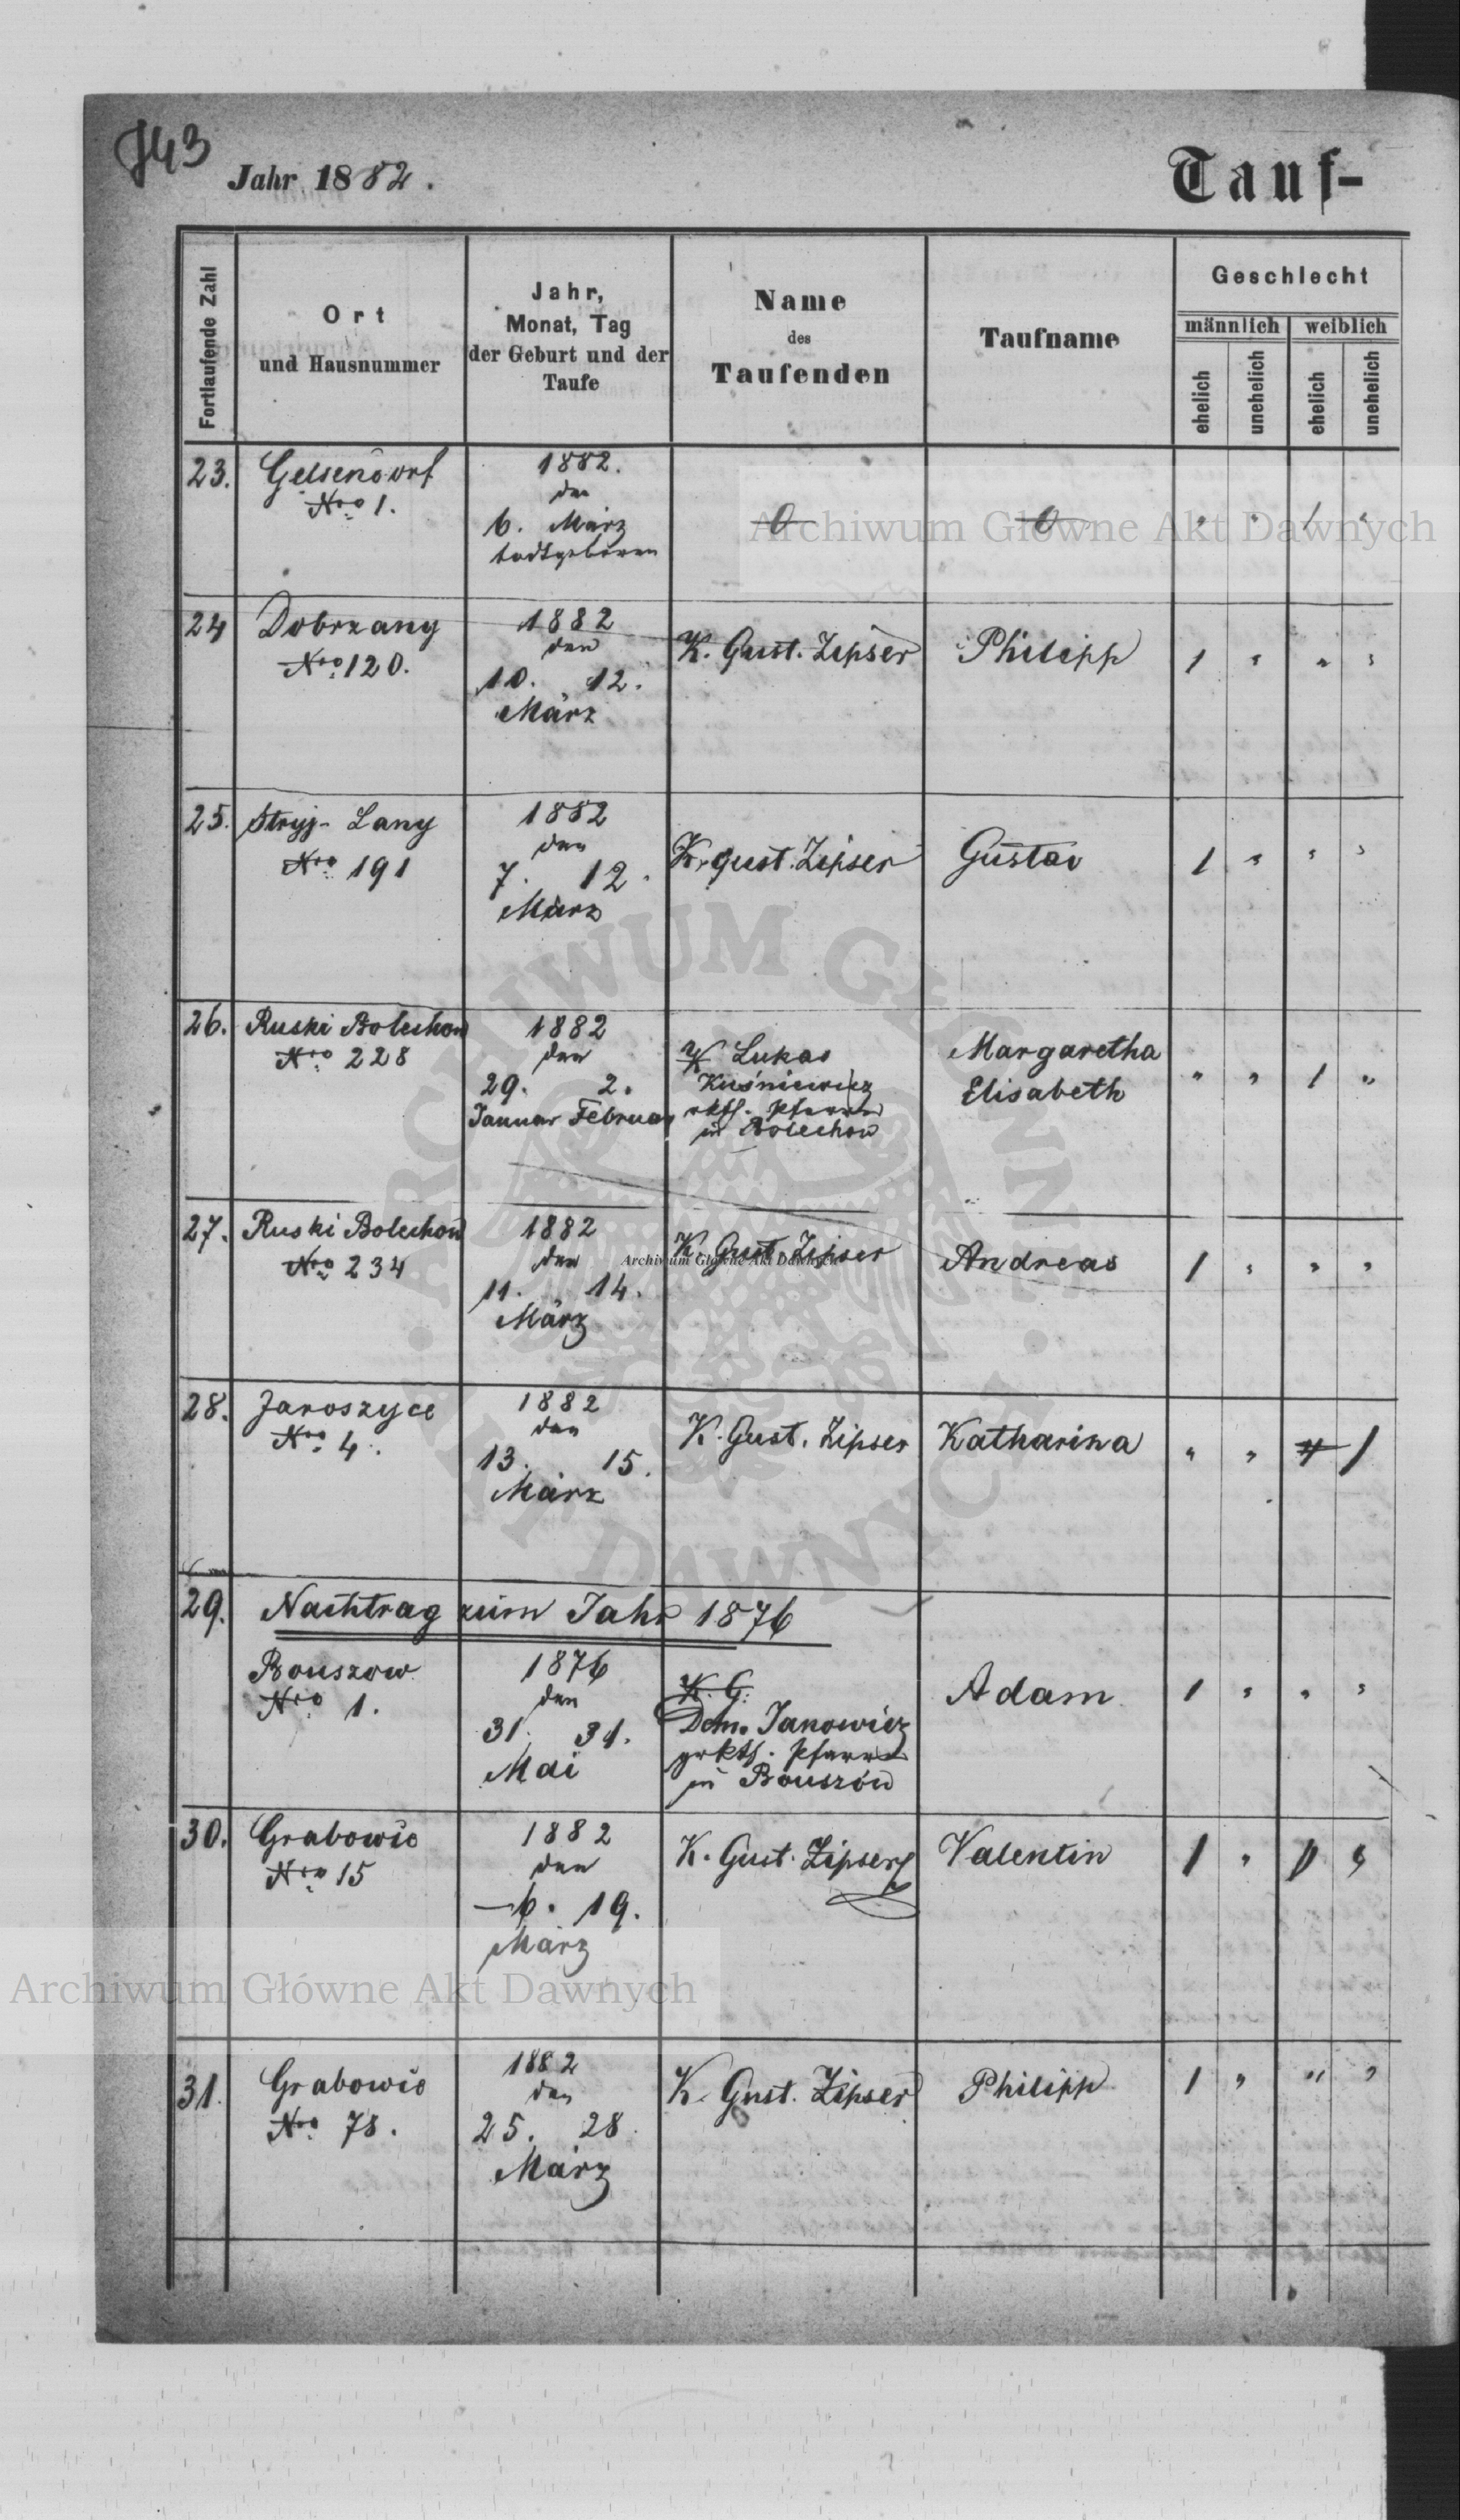 743
Jahr 1882.
Tauf-
Fortlaufende Zahl
Ort
und Hausnummer
Jahr,
Monat, Tag
der Geburt und der
Taufe
Name
des
Taufenden
Taufname
Geschlecht
männlich weiblich
ehelich unehelich ehelich unehelich
23. Gelsendorf
Nro 1.
1882.
den
6. März
todtgeboren
0 0 " " 1 "
24 Dobrzany
Nro 120.
1882
den
10. 12.
März
K. Gust. Zipser
Philipp
1 " " "
25. Stryj- Lany
Nro 191
1882
den
7. 12.
März
K. Gust. Zipser
Gustav
1 " " "
26. Ruski Bolechow
Nro 228
1882
den
29. 2.
Januar Februar
Lukas
Kuśniewicz
rkth. Pfarrer
in Bolechow
Margaretha
Elisabeth
" " 1 "
27. Ruski Bolechow
Nro 234
1882
den
11. 14.
März
K. Gust. Zipser
Andreas
1 " " "
28. Jaroszyce
Nro 4.
1882
den
13. 15.
März
K. Gust. Zipser
Katharina
" " 1
29. Nachtrag zum Jahr 1876
Bouszow
Nro 1.
1876
den
31. 31.
Mai
K. G.
Dem. Janowicz
grkth. Pfarrer
in Bouszów
Adam
1 " " "
30. Grabowie
Nro 15
1882
den
6. 19.
März
K. Gust. Zipser
Valentin
1 " "
31. Grabowie
Nro 78.
1882
den
25. 28.
März
K. Gust. Zipser
Philipp
1 " " "
Archiwum Główne Akt Dawnych
Archiwum Główne Akt Dawnych
Archiwum Główne Akt Dawnych
ARCHIWUM GŁÓWNE · AKT DAWNYCH ·